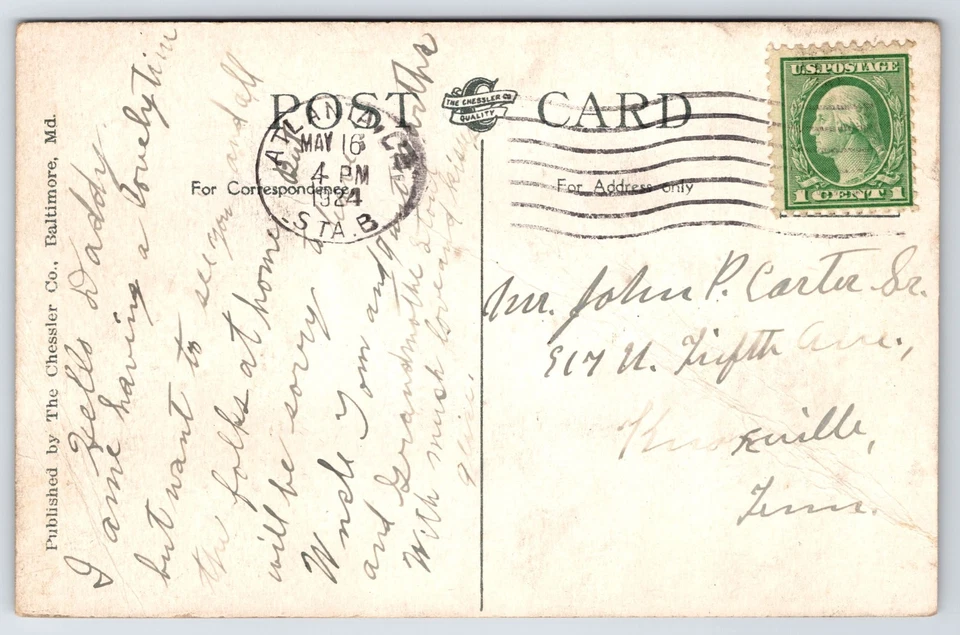 POST CARD
THE CHESSLER CO
QUALITY
U.S. POSTAGE
1 CENT 1
ATLANTA, GA.
MAY 16
4 PM
1924
STA. B
For Correspondence
For Address only
Published by The Chessler Co., Baltimore, Md.
Hello Daddy
I am having a lovely time
but want to see you and all
the folks at home
will be sorry to
Uncle Tom and
and Grandmother
With much love and kisses
Mr. John P. Carter Sr.
917 N. Fifth Ave.,
Knoxville,
Tenn.